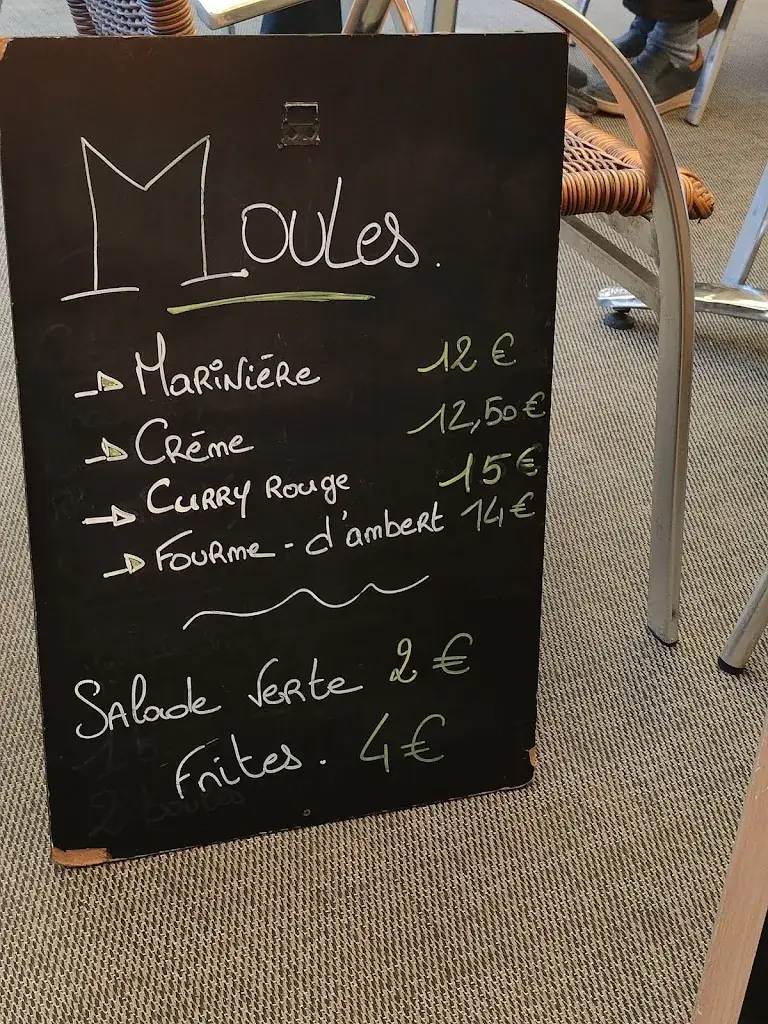 Moules.
Marinière 12 €
Crème 12,50 €
Curry Rouge 15 €
Fourme-d'ambert 14 €
Salade verte 2 €
Frites. 4 €
2 boules